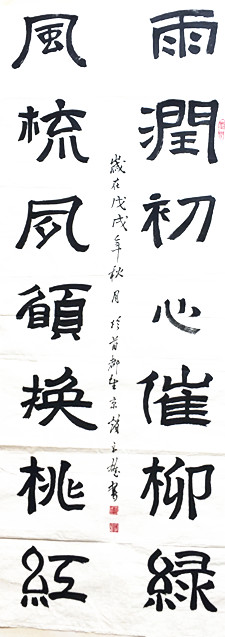 雨潤初心催柳綠
風梳夙願換桃紅
歲在戊戌年秋月於首都北京書